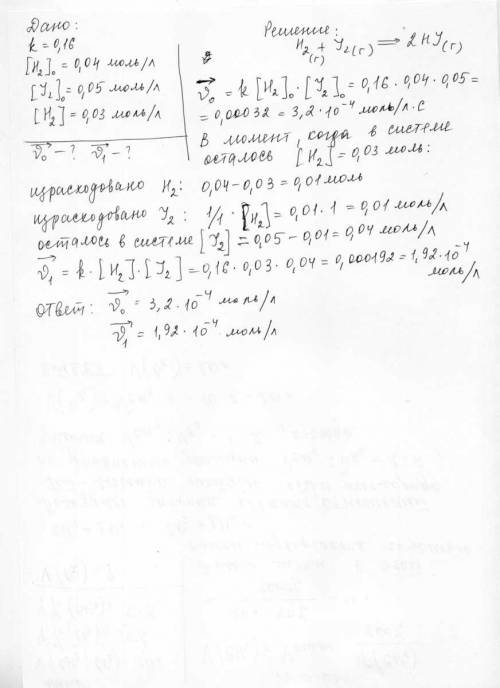 Дано:
k = 0,16
[H₂]₀ = 0,04 моль/л
[J₂]₀ = 0,05 моль/л
[H₂] = 0,03 моль/л
v₀ - ? v₁ - ?
Решение:
H₂(г) + J₂(г) ⇒ 2HJ(г)
v₀ = k [H₂]₀ · [J₂]₀ = 0,16 · 0,04 · 0,05 =
= 0,00032 = 3,2 · 10⁻⁴ моль/л·с
В момент, когда в системе
осталось [H₂] = 0,03 моль:
израсходовано H₂: 0,04 - 0,03 = 0,01 моль
израсходовано J₂: 1/1 · [H₂] = 0,01 · 1 = 0,01 моль/л
осталось в системе [J₂] = 0,05 - 0,01 = 0,04 моль/л
v₁ = k · [H₂] · [J₂] = 0,16 · 0,03 · 0,04 = 0,000192 = 1,92 · 10⁻⁴
моль/л
ответ: v₀ = 3,2 · 10⁻⁴ моль/л
v₁ = 1,92 · 10⁻⁴ моль/л